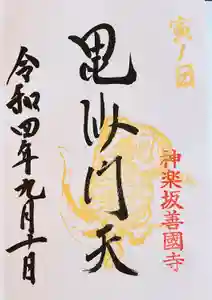 寅ノ日
毘沙門天
神楽坂善國寺
令和四年九月十日